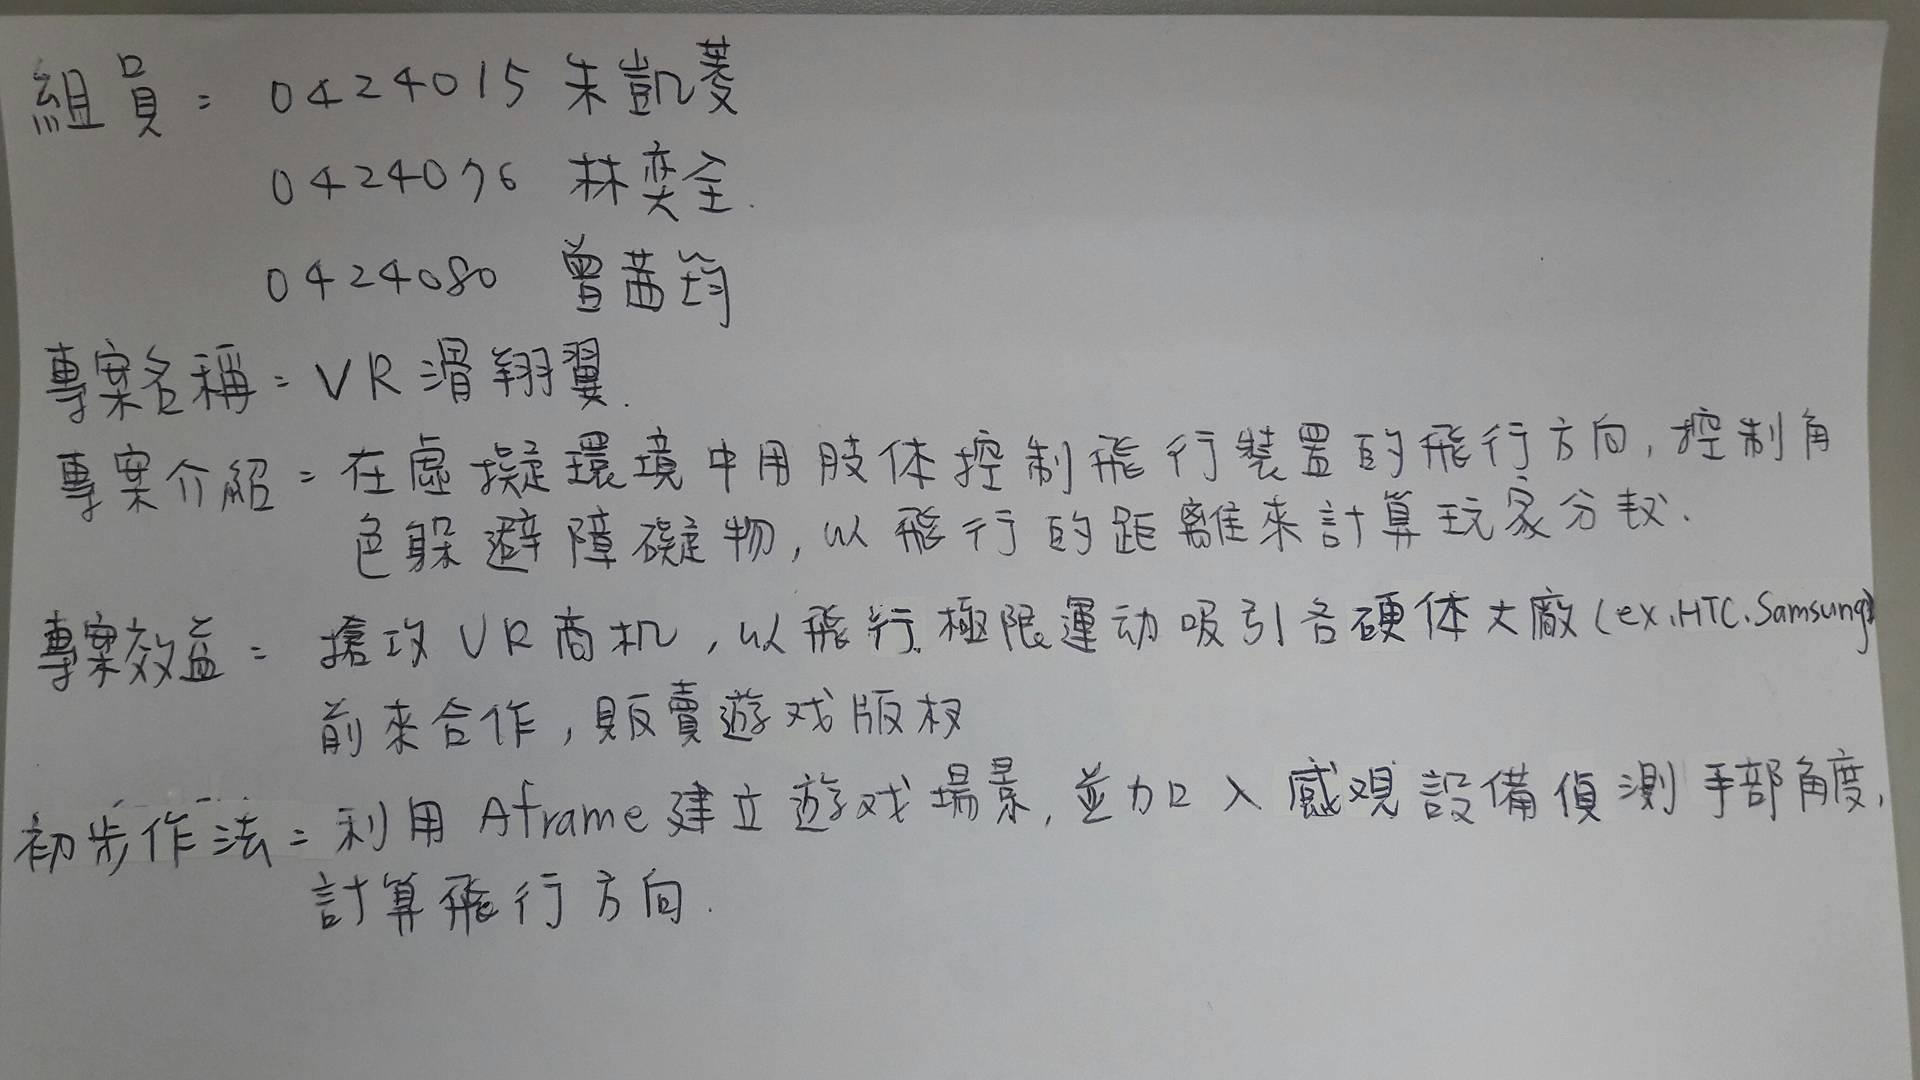 組員: 0424015 朱凱菱
0424076 林奕全.
0424080 曾茜筠
專案名稱: VR滑翔翼.
專案介紹: 在虛擬環境中用肢体控制飛行裝置的飛行方向,控制角
色躲避障礙物,以飛行的距離來計算玩家分数.
專案效益: 搶攻VR商机,以飛行.極限運动吸引各硬体大廠(ex.HTC.Samsung)
前來合作,販賣遊戏版权
初步作法: 利用Aframe建立遊戏場景,並加入感观設備偵測手部角度,
計算飛行方向.